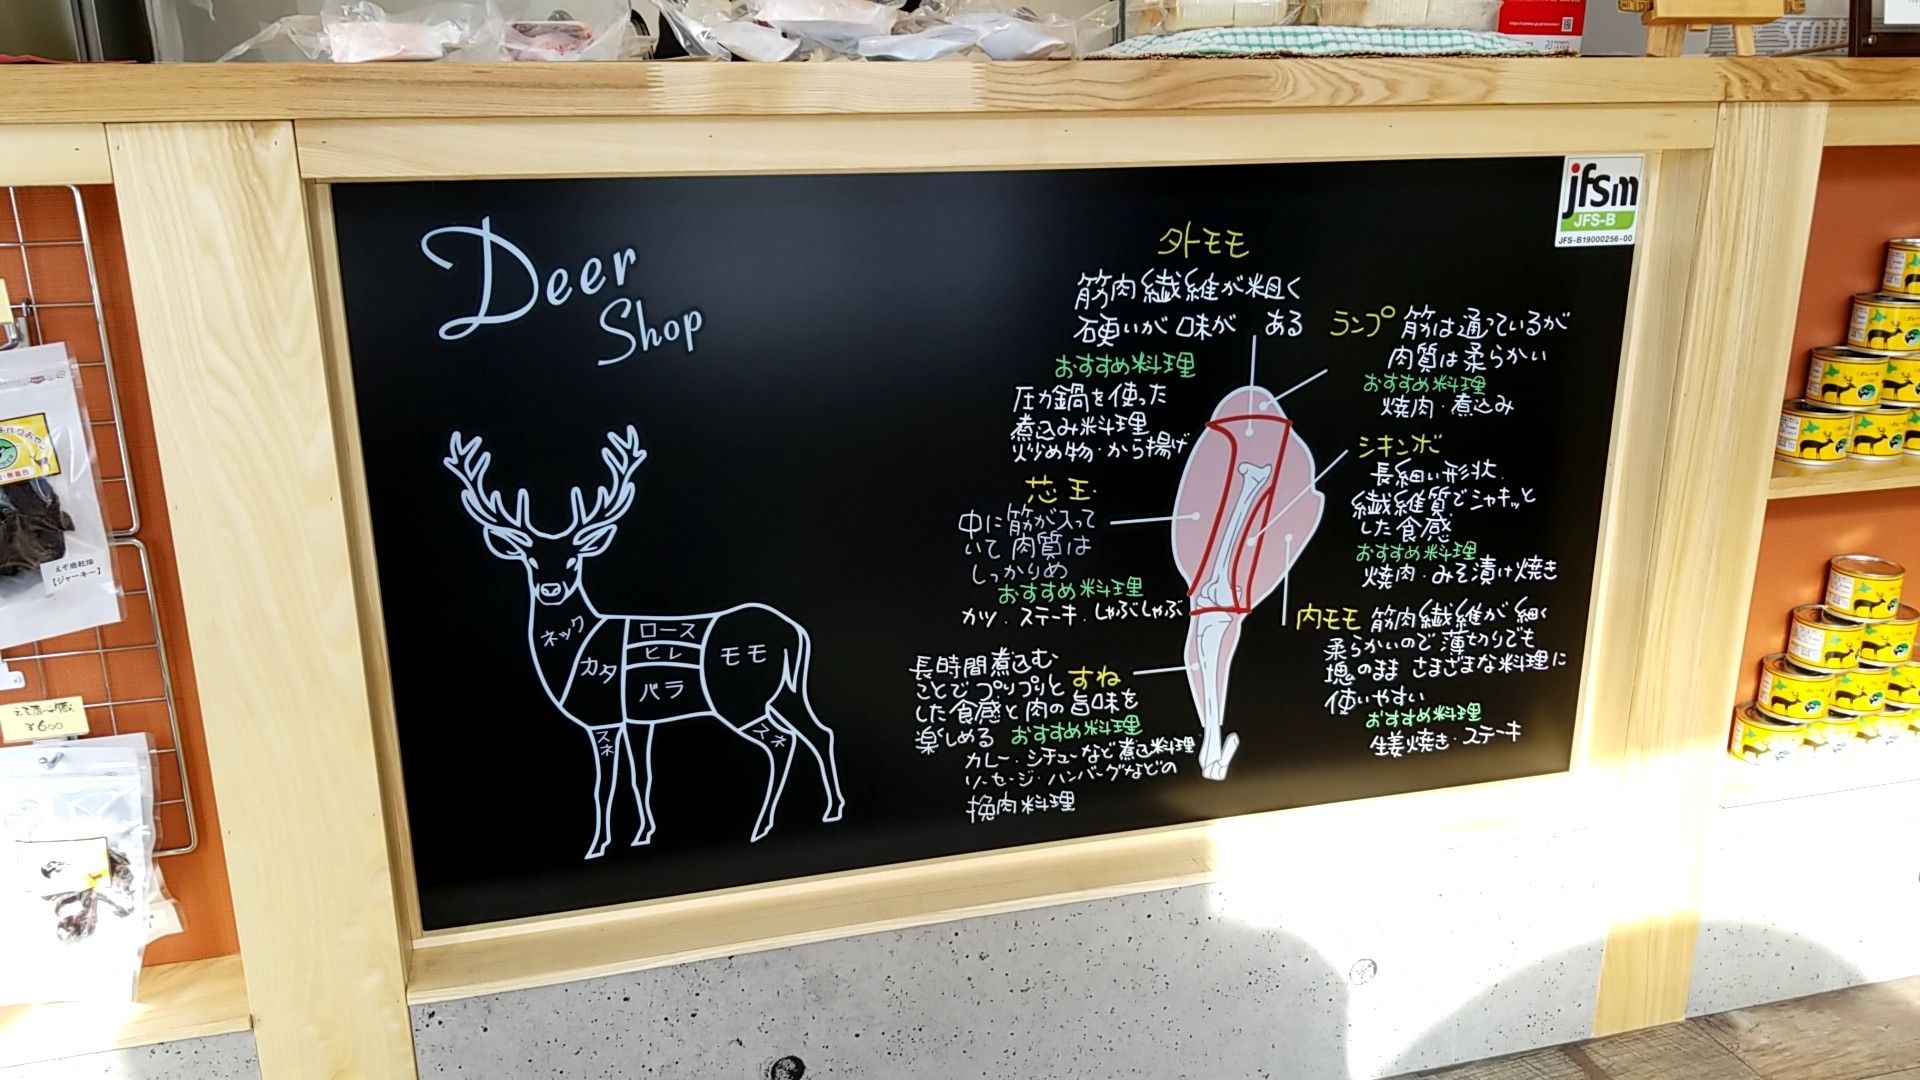 Deer
Shop
ネック
カタ
ロース
ヒレ
バラ
モモ
スネ
スネ
外モモ
筋肉繊維が粗く
硬いが味がある
おすすめ料理
圧力鍋を使った
煮込み料理
炒め物・から揚げ
芯玉
中に筋が入って
いて肉質は
しっかりめ
おすすめ料理
カツ・ステーキ・しゃぶしゃぶ
すね
長時間煮込む
ことでプリプリと
した食感と肉の旨味を
楽しめる
おすすめ料理
カレー・シチューなど煮込料理
ソーセージ・ハンバーグなどの
挽肉料理
ランプ
筋は通っているが
肉質は柔らかい
おすすめ料理
焼肉・煮込み
シキンボ
長細い形状
繊維質でシャキッと
した食感
おすすめ料理
焼肉・みそ漬け焼き
内モモ
筋肉繊維が細く
柔らかいので薄切りでも
塊のままさまざまな料理に
使いやすい
おすすめ料理
生姜焼き・ステーキ
jfsm
JFS-B
JFS-B19000256-00
えぞ鹿乾燥
【ジャーキー】
¥600